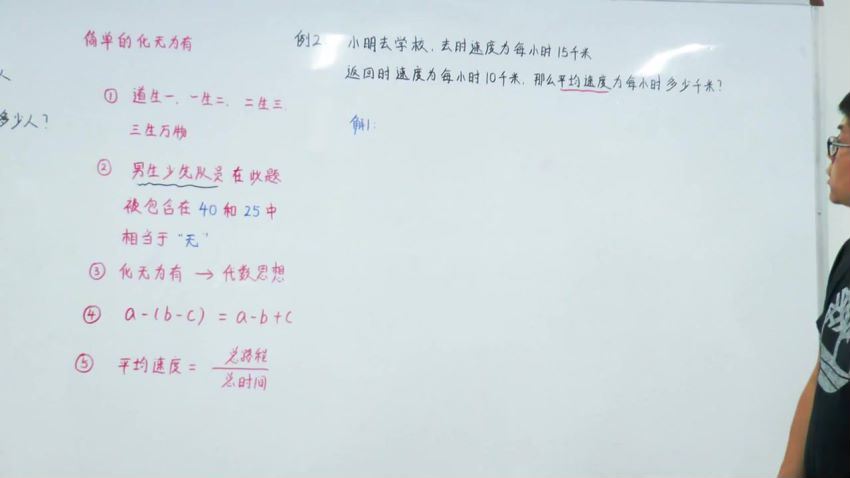 人
多少人?
简单的化无为有
① 道生一、一生二、二生三、
三生万物
② 男生少先队员在此题
被包含在40和25中
相当于“无”
③ 化无为有 → 代数思想
④ a-(b-c) = a-b+c
⑤ 平均速度 = 总路程/总时间
例2. 小明去学校,去时速度为每小时15千米
返回时速度为每小时10千米,那么平均速度为每小时多少千米?
解1: